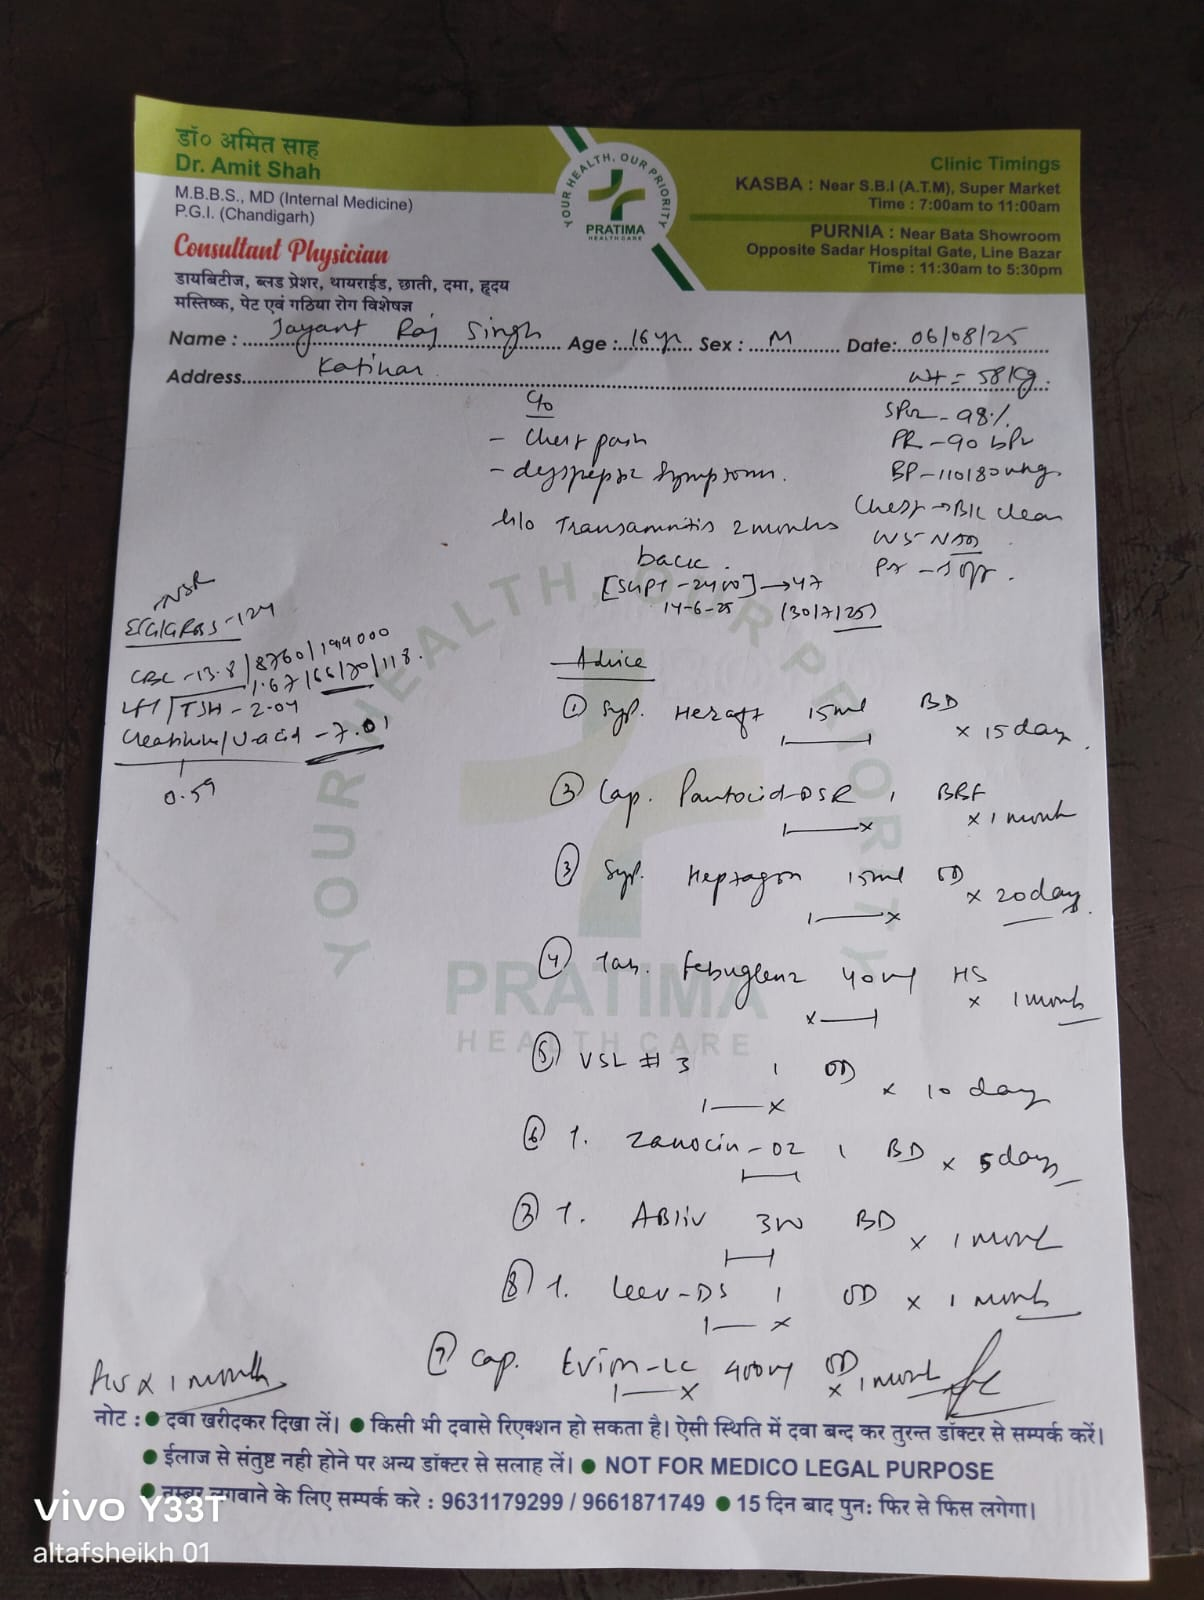 डॉ० अमित साह
Dr. Amit Shah
M.B.B.S., MD (Internal Medicine)
P.G.I. (Chandigarh)
Consultant Physician
डायबिटीज, ब्लड प्रेशर, थायराईड, छाती, दमा, हृदय
मस्तिष्क, पेट एवं गठिया रोग विशेषज्ञ
YOUR HEALTH, OUR PRIORITY
PRATIMA
HEALTH CARE
Clinic Timings
KASBA : Near S.B.I (A.T.M), Super Market
Time : 7:00am to 11:00am
PURNIA : Near Bata Showroom
Opposite Sadar Hospital Gate, Line Bazar
Time : 11:30am to 5:30pm
Name : Jayant Raj Singh Age : 16 yr Sex : M Date: 06/08/25
Address Katihar
Wt = 58 kg
C/o
- Chest pain
- dyspeptic symptoms.
H/o Transaminitis 2 months
back.
[SGPT - 2400] → 47
14-6-25 (30/7/25)
SPO2 - 98%
PR - 90 bpm
BP - 110/80 mmhg
Chest → B/L clear
NSR
ECG/GRBS - 124
CBC - 13.8/8760/199000
LFT 1.67/66/70/118.
TSH - 2.04
Creatinine/U.acid - 7.01
0.59
Advice
① Syp. 15ml BD
x 15 day.
② Cap. Pantocid-DSR 1 BBF
x 1 month
③ Syp. Heptagon 15ml OD
x 20 day.
④ Tab. 40mg HS
x 1 month
⑤ VSL # 3 1 OD x 10 day
⑥ T. Zanocin-OZ 1 BD x 5 days
T. ABliv BD x 1 month
⑧ T. 1 OD x 1 month
Cap. Evim-LC 400mg OD x 1 month
x 1 month
YOUR HEALTH, OUR PRIORITY
PRATIMA
HEALTH CARE
नोट : ● दवा खरीदकर दिखा लें। ● किसी भी दवासे रिएक्शन हो सकता है। ऐसी स्थिति में दवा बन्द कर तुरन्त डॉक्टर से सम्पर्क करें।
● ईलाज से संतुष्ट नही होने पर अन्य डॉक्टर से सलाह लें। ● NOT FOR MEDICO LEGAL PURPOSE
● नम्बर लगवाने के लिए सम्पर्क करे : 9631179299 / 9661871749 ● 15 दिन बाद पुन: फिर से फिस लगेगा।
vivo Y33T
altafsheikh 01